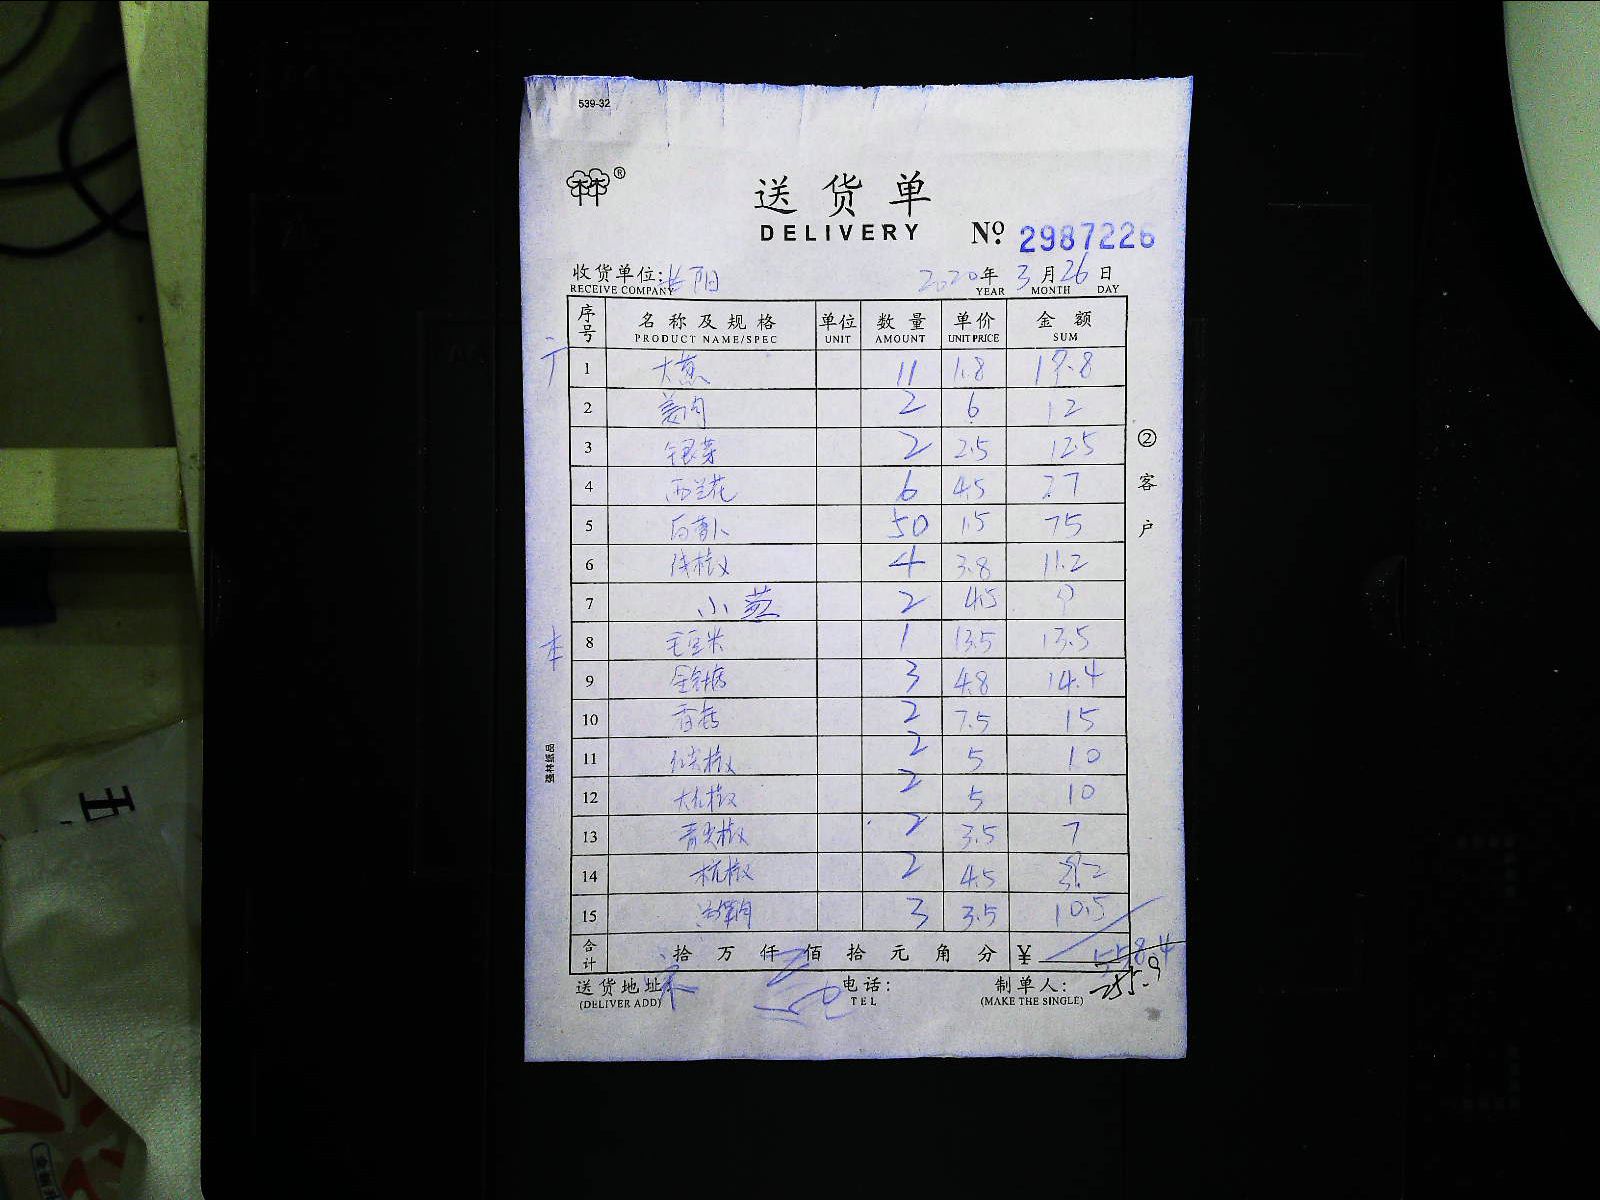 539-32
林®
送货单
DELIVERY № 2987226
收货单位: 长阳 2020年 3月26日
RECEIVE COMPANY YEAR MONTH DAY
序号 名称及规格 单位 数量 单价 金额
PRODUCT NAME/SPEC UNIT AMOUNT UNIT PRICE SUM
1 大葱 11 1.8 19.8
2 姜肉 2 6 12
3 银芽 2 2.5 12.5
4 西兰花 6 4.5 27
5 白萝卜 50 1.5 75
6 线椒 4 3.8 11.2
7 小葱 2 4.5 9
8 毛豆米 1 13.5 13.5
9 金针菇 3 4.8 14.4
10 香菇 2 7.5 15
11 红尖椒 2 5 10
12 大红椒 2 5 10
13 青尖椒 2 3.5 7
14 杭椒 2 4.5
15 3 3.5 10.5
合计 拾万仟佰拾元角分 ¥ 558.4
255.9
送货地址: 电话: 制单人:
(DELIVER ADD) TEL (MAKE THE SINGLE)
②客户
强林纸品
五